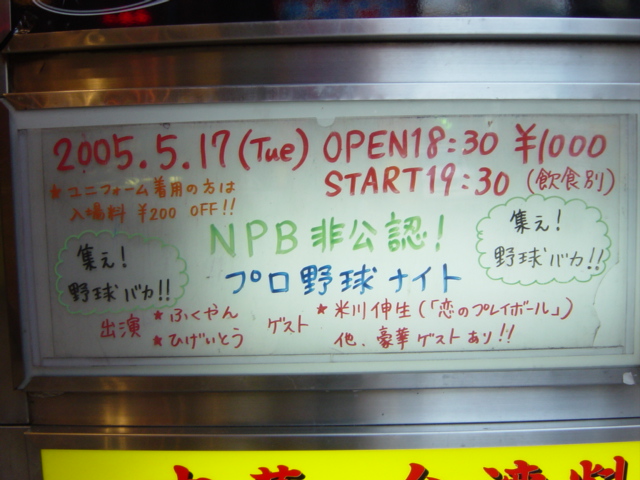 2005.5.17(Tue) OPEN18:30 ¥1000
START19:30 (飲食別)
★ユニフォーム着用の方は
入場料 ¥200 OFF!!
NPB非公認!
プロ野球ナイト
集え!
野球バカ!!
集え!
野球バカ!!
出演 ★ふくやん
★ひげいとう
ゲスト ★米川伸生(「恋のプレイボール」)
他、豪華ゲストあり!!
台湾料